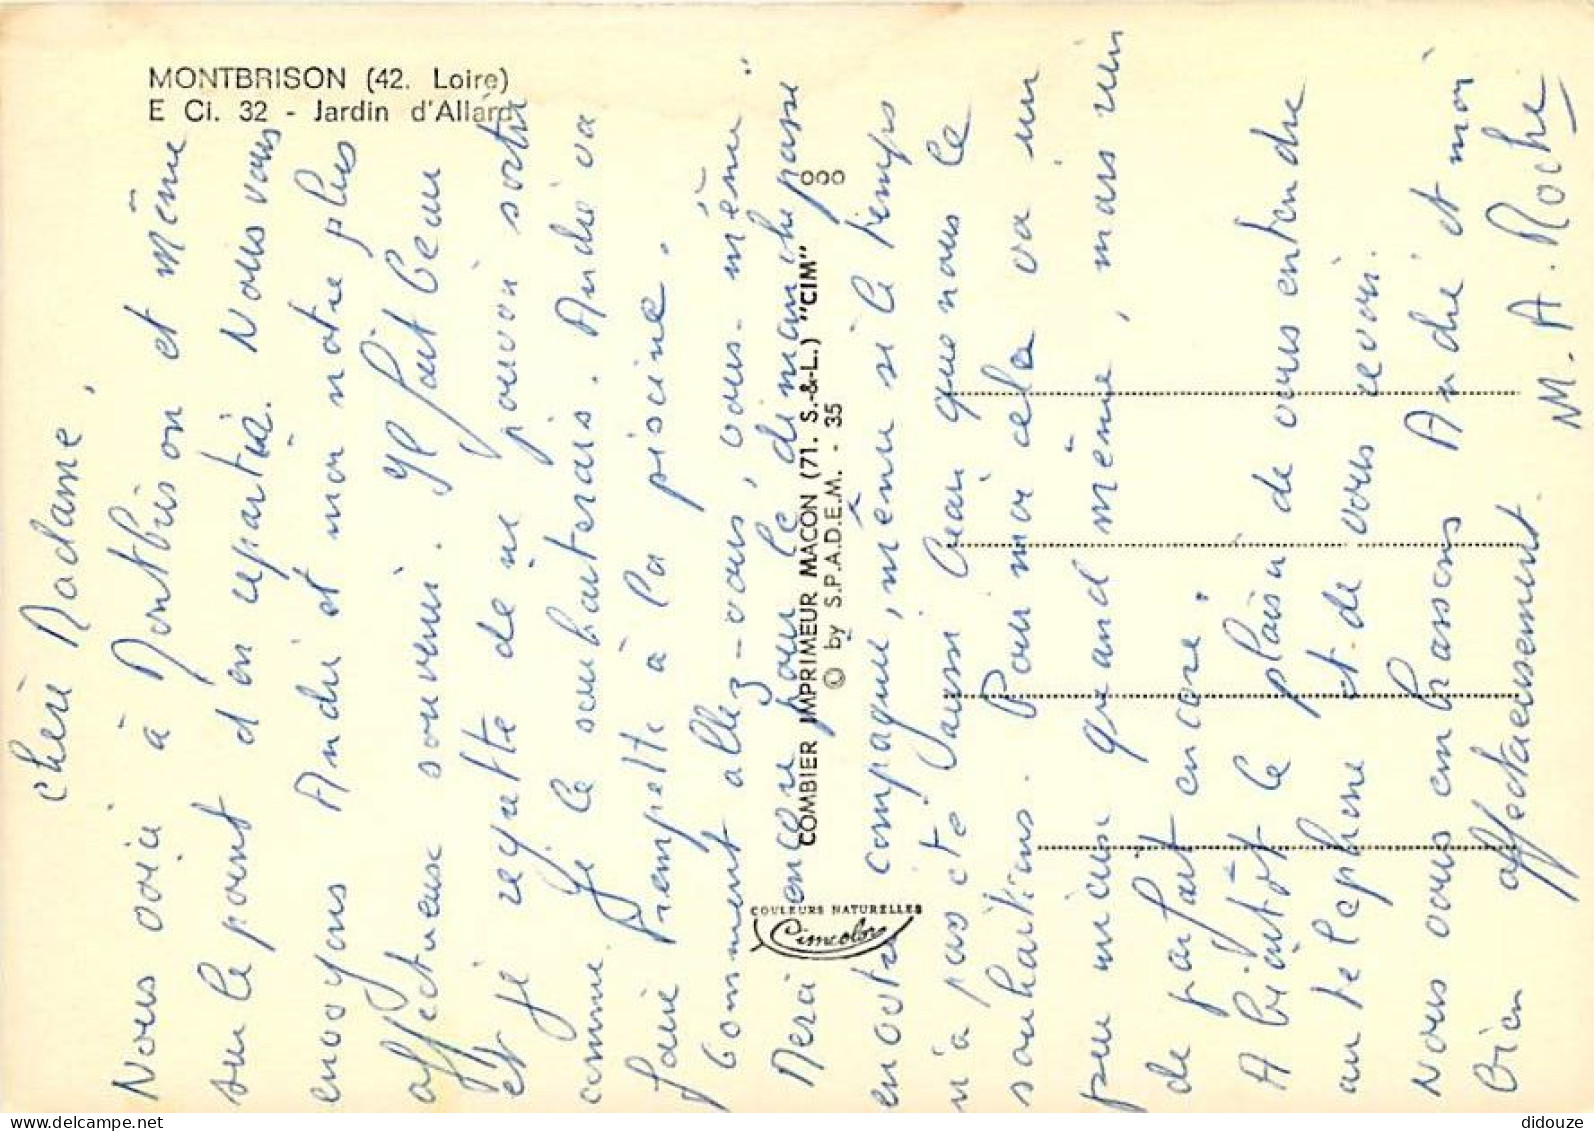 MONTBRISON (42. Loire)
E Ci. 32 - Jardin d'Allard
Chère Madame,
Nous voici à Montbrison et même
sur le point d'en repartir. Nous vous
envoyons André et moi notre plus
affectueux souvenir. Il fait beau
et je regrette de ne pouvoir sortir
comme je le souhaiterais. André va
faire trempette à la piscine.
Comment allez-vous, vous-même"
Merci encore pour le dimanche passé
en votre compagnie, même si le temps
n'a pas été aussi beau que nous le
souhaitions. Pour moi cela va un
peu mieux quand même, mais rien
de parfait encore.
A bientôt le plaisir de vous entendre
au téléphone et de vous revoir.
Nous vous embrassons André et moi
bien affectueusement.
M. A. Roche
COMBIER IMPRIMEUR MACON (71. S.-&-L.) "CIM"
© by S.P.A.D.E.M. - 35
ooo
COULEURS NATURELLES
Cimcolor
www.delcampe.net
didouze